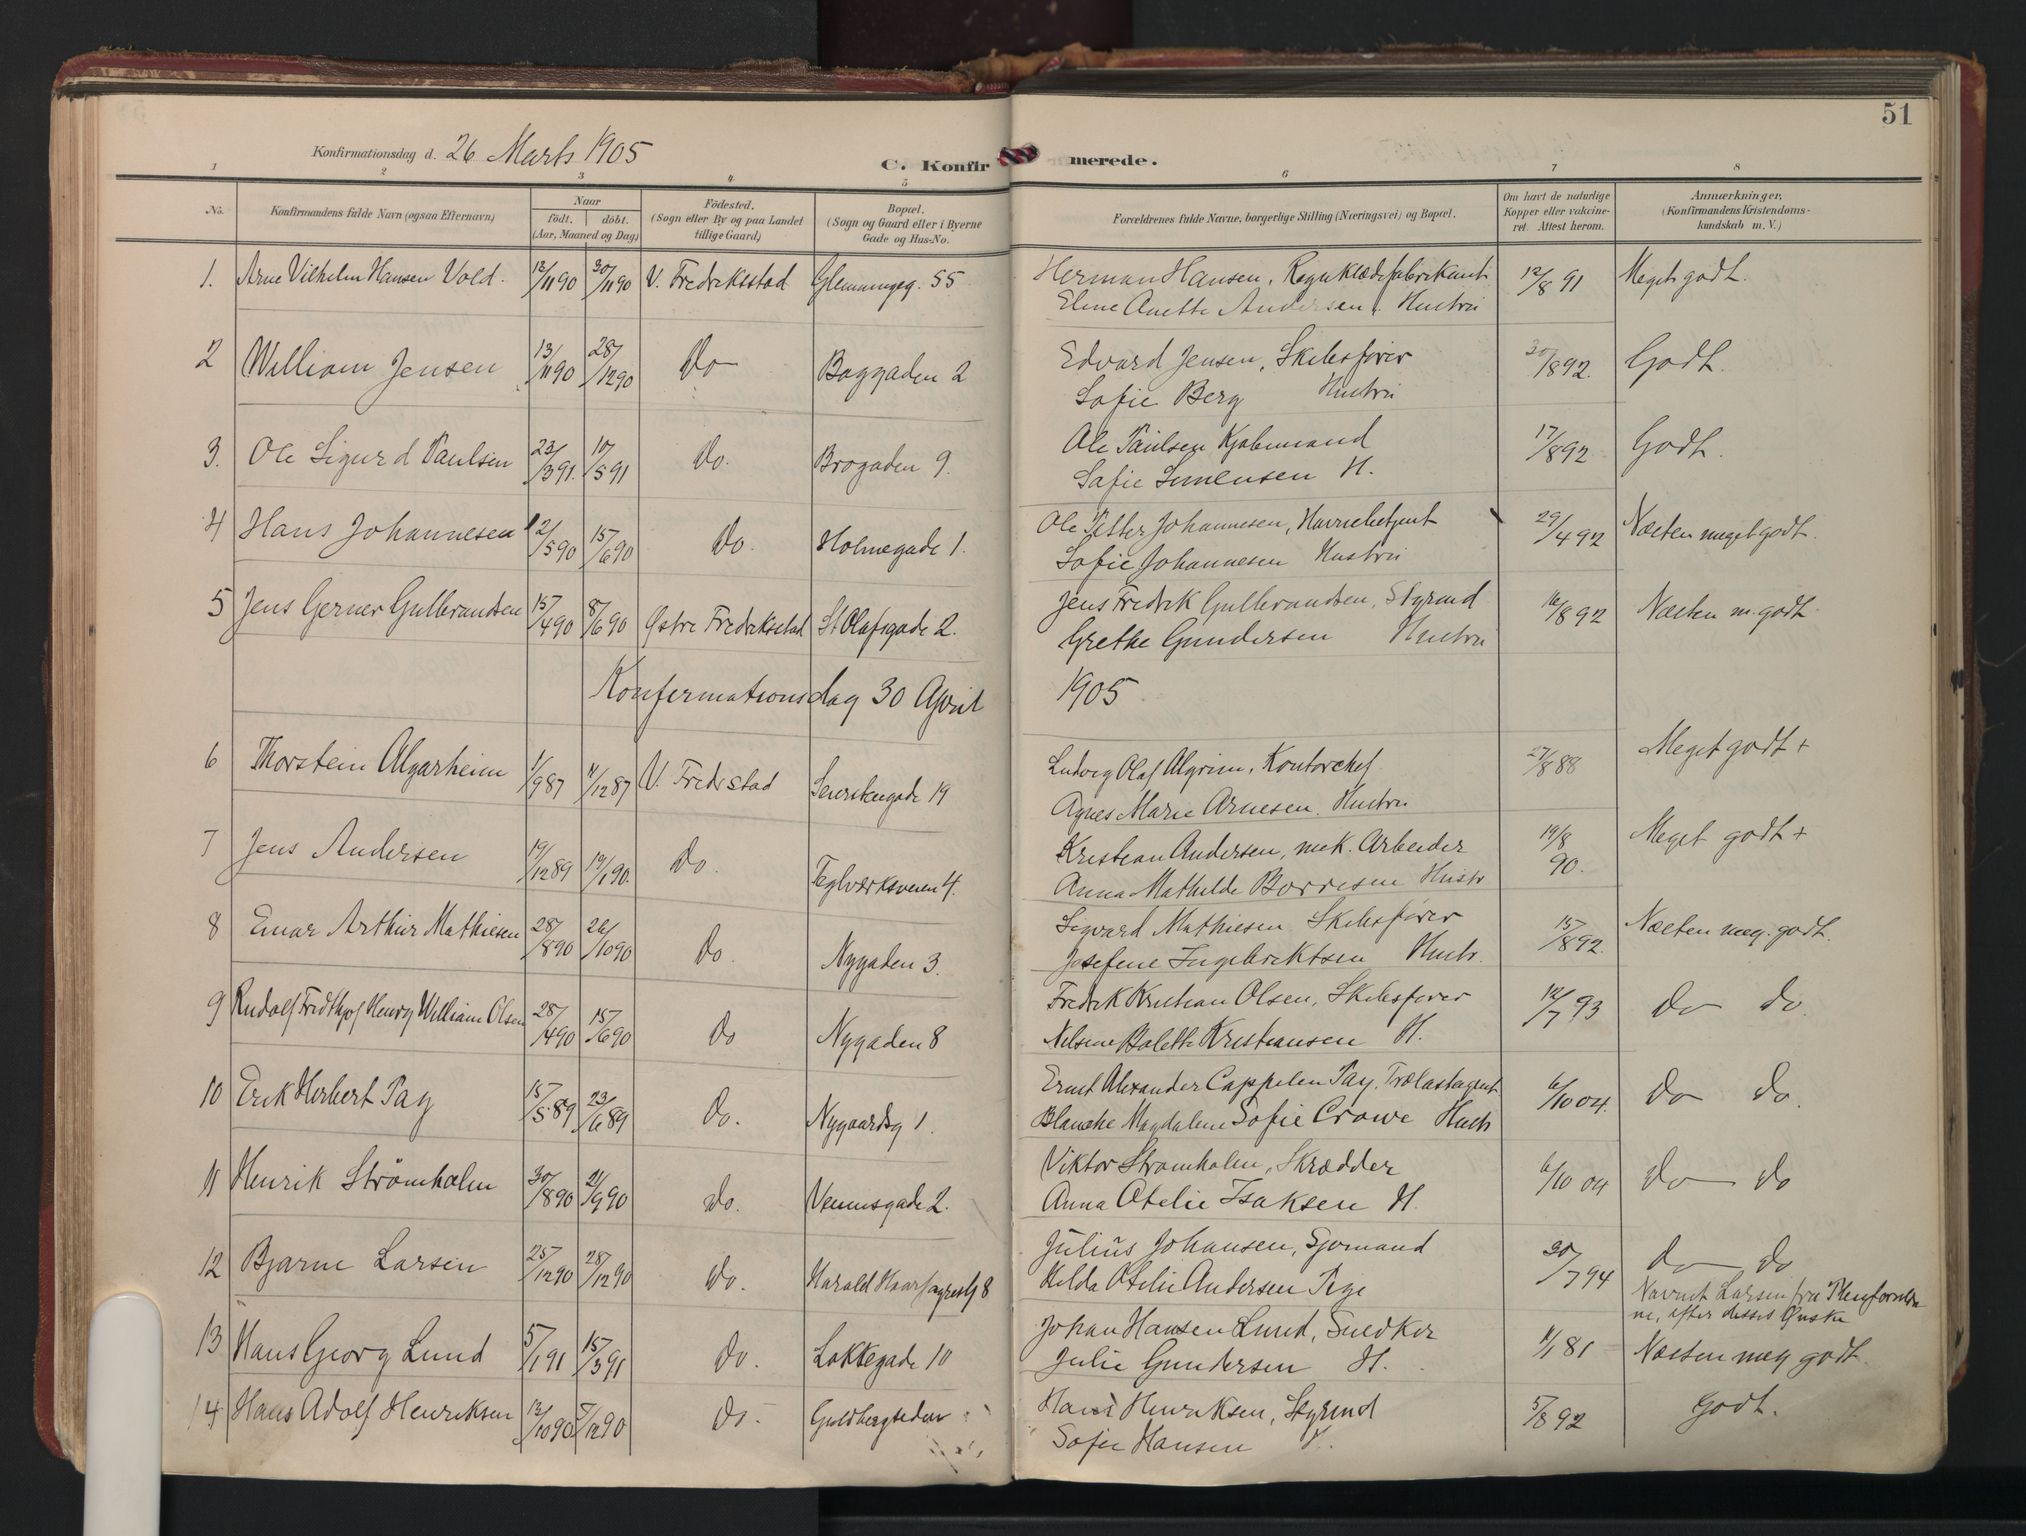 51
Konfirmationsdag d. 26 Marts 1905
C. Konfirmerede.
1 2 3 4 5 6 7 8
No. Konfirmandens fulde Navn (ogsaa Efternavn) Naar født. døbt. (Aar, Maaned og Dag) Fødested. (Sogn eller By og paa Landet tillige Gaard) Bopæl. (Sogn og Gaard eller i Byerne Gade og Hus-No. Forældrenes fulde Navne, borgerlige Stilling (Næringsvei) og Bopæl. Om havt de naturlige Kopper eller vakcineret. Attest herom. Anmærkninger, (Konfirmandens Kristendomskundskab m. V.)
1. Arne Vilhelm Hansen Vold. 12/11 90 30/11 90 V. Fredriksstad Glemmengeg. 55 Herman Hansen, Regnklædefabrikant 12/8 91 Meget godt.
Eline Anette Andersen, Hustru
2 William Jensen 13/11 90 28/12 90 Do Baggaden 2 Edvard Jensen, Skibsfører 30/8 92. Godt.
Sofie Berg Hustru
3. Ole Sigurd Paulsen 23/3 91. 10/5 91 Do. Brogaden 9. Ole Paulsen Kjøbmand 17/8 92 Godt.
Sofie Simensen H.
4 Hans Johannesen 2/5 90 15/6 90 Do. Holmegade 1. Ole Petter Johannesen, Havnebetjent 29/4 92 Næsten meget godt.
Sofie Johannesen Hustru
5 Jens Gerner Gulbrandsen 15/4 90 8/6 90 Østre Fredriksstad St Olafsgade 2. Jens Fredrik Gulbrandsen, Styrmd 16/8 92 Næsten m. godt.
Grethe Gundersen Hustru
Konfermationsdag 30 April 1905
6 Thorstein Algarheim 1/9 87 11/12 87 V. Fredrstad 19 Ludvig Olaf Algrim, Kontorchef 27/8 88 Meget godt +
Agnes Marie Arnesen. Hustru
7 Jens Andersen 19/12 89 19/1 90. Do. Teglværksveien 4. Kristian Andersen, mek. Arbeider 19/8 90. Meget godt +
Anna Mathilde Borresen Hustr
8 Einar Arthur Mathiesen 28/8 90 26/10 90 Do. Nygaden 3. Sigvard Mathiesen Skibsfører 15/8 92. Næsten meg. godt.
Josefine Ingebriktsen Hustr.
9 Rudolf Fridthjof Henry William Olsen 28/4 90 15/6 90 Do Nygaden 8 Fredrik Kristian Olsen, Skibsfører 12/7 93 Do Do.
Nilsine Bolette Kristiansen H.
10 Erik Herbert Pay 15/5 89 23/6 89 Do. Nygaardsg 1. Ernst Alexander Cappelen Pay, Trælastagent 6/10 04. Do Do.
Blanche Magdalene Sofie Crowe Hustr
11 Henrik Strømholm 30/8 90 21/9 90 Do. Venusgade 2. Viktor Strømholm, Skrædder 6/10 04 Do Do
Anna Otelie Isaksen H.
12 Bjarne Larsen 25/12 90 28/12 90 Do. Harald Haarfagresg 8 Julius Johansen, Sjømand 30/7 94 Do Do
Hilda Otelie Andersen Pige Navnet Larsen fra Pleieforældre
ne, efter disses Ønske
13 Hans Georg Lund 5/1 91 15/3 91 Do. Løkkegade 10 Johan Hansen Lund, Snedker 11/1 81 Næsten meg godt.
Julie Gundersen H.
14 Hans Adolf Henriksen 13/10 90 7/12 90 Do. Guldbergseden Hans Henriksen, Styrmd 5/8 92 Godt.
Sofie Hansen H.